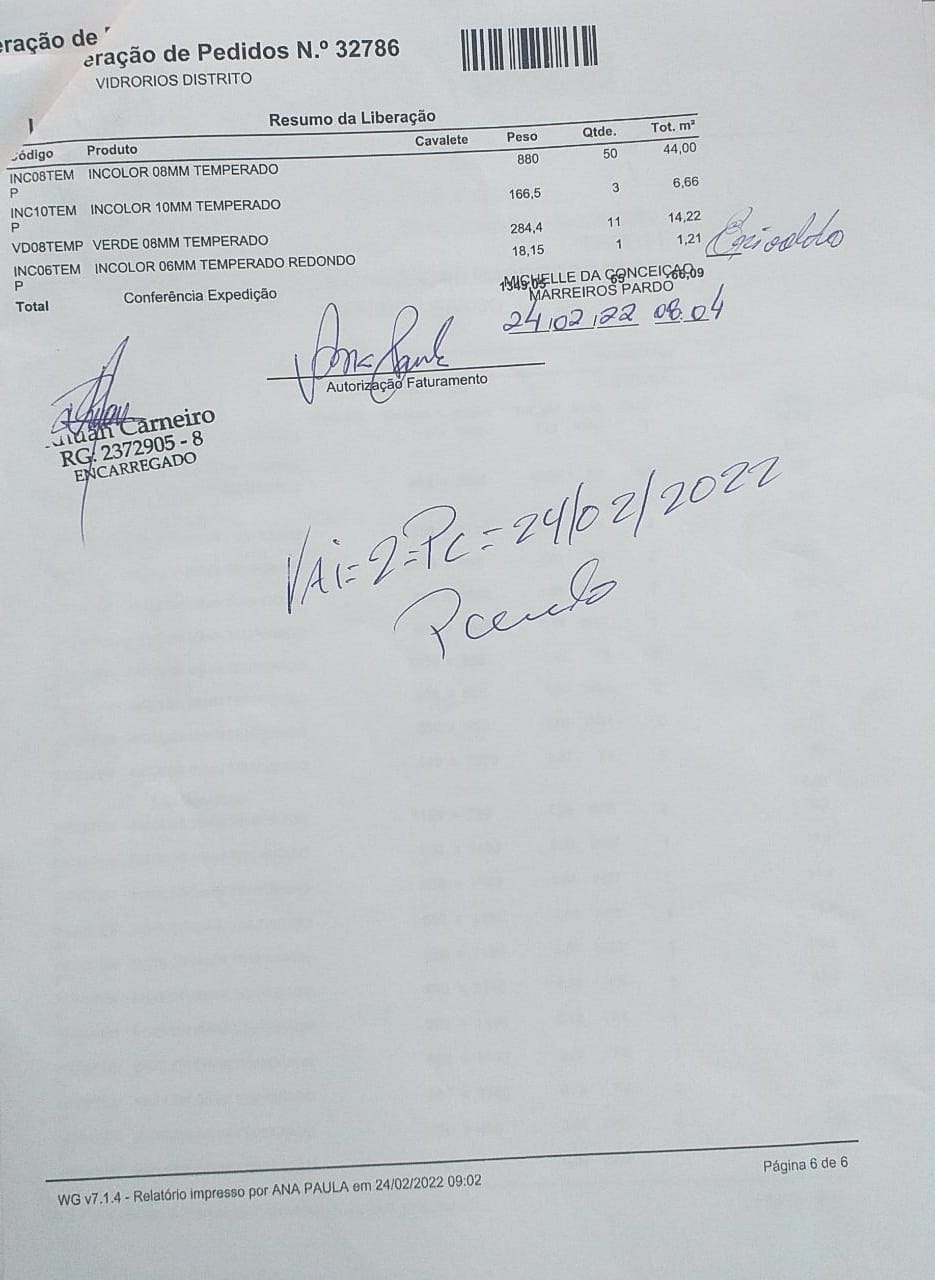 eração de
eração de Pedidos N.º 32786
VIDRORIOS DISTRITO
Resumo da Liberação
código Produto Cavalete Peso Qtde. Tot. m²
INC08TEM P INCOLOR 08MM TEMPERADO 880 50 44,00
INC10TEM P INCOLOR 10MM TEMPERADO 166,5 3 6,66
VD08TEMP VERDE 08MM TEMPERADO 284,4 11 14,22
INC06TEM P INCOLOR 06MM TEMPERADO REDONDO 18,15 1 1,21
Total 1349,05 65 66,09
MICHELLE DA CONCEIÇAO
MARREIROS PARDO
Conferência Expedição
24/02/22 08:04
Ana Paula
Autorização Faturamento
Carneiro
RG: 2372905 - 8
ENCARREGADO
VAi=2=PC=24/02/2022
WG v7.1.4 - Relatório impresso por ANA PAULA em 24/02/2022 09:02
Página 6 de 6